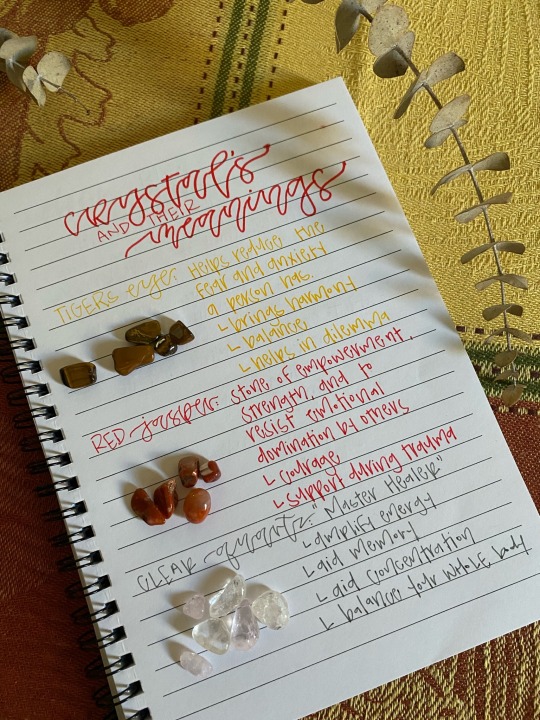 crystal's
AND THEIR
meanings
TIGERS eye: Helps reduce the
fear and anxiety
a person has.
↳ brings harmony
↳ balance
↳ helps in dilemma
RED jasper: stone of empowerment,
strength, and to
resist emotional
domination by others
↳ courage
↳ support during trauma
CLEAR quartz: "Master Healer"
↳ amplify energy
↳ aid memory
↳ aid concentration
↳ balance your whole body